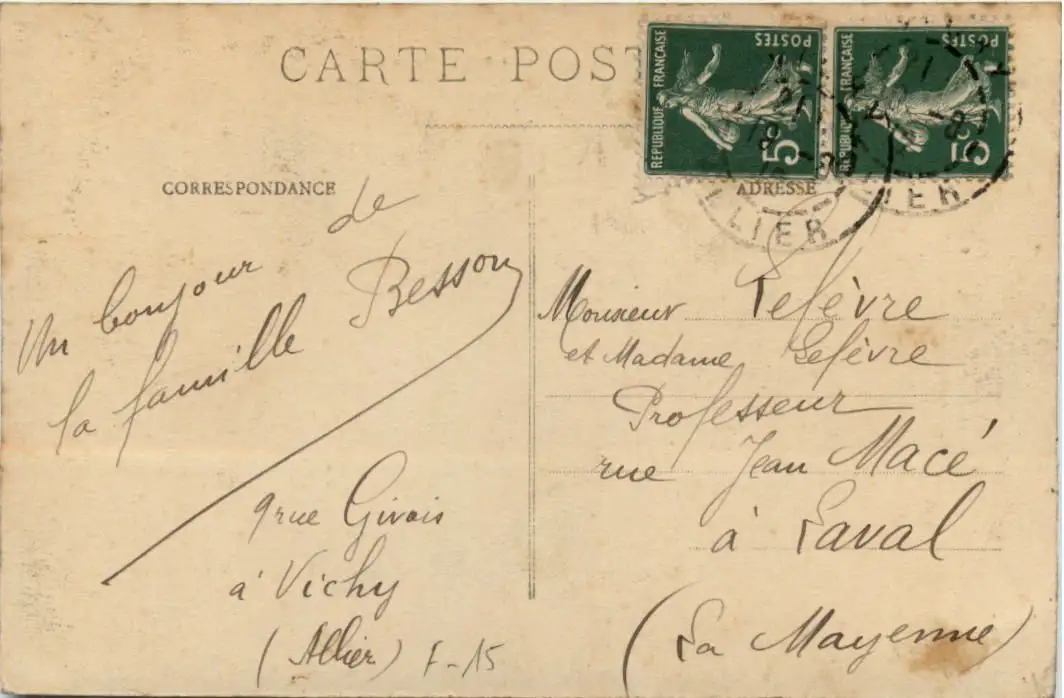 CARTE POST
RÉPUBLIQUE FRANÇAISE
POSTES
5c
RÉPUBLIQUE FRANÇAISE
POSTES
5c
ALLIER
LLIER
CORRESPONDANCE
Un bonjour de
la famille Besson
9 rue Givois
à Vichy
(Allier) F-15
ADRESSE
Monsieur Lefèvre
et Madame Lefèvre
Professeur
rue Jean Macé
à Laval
(La Mayenne)